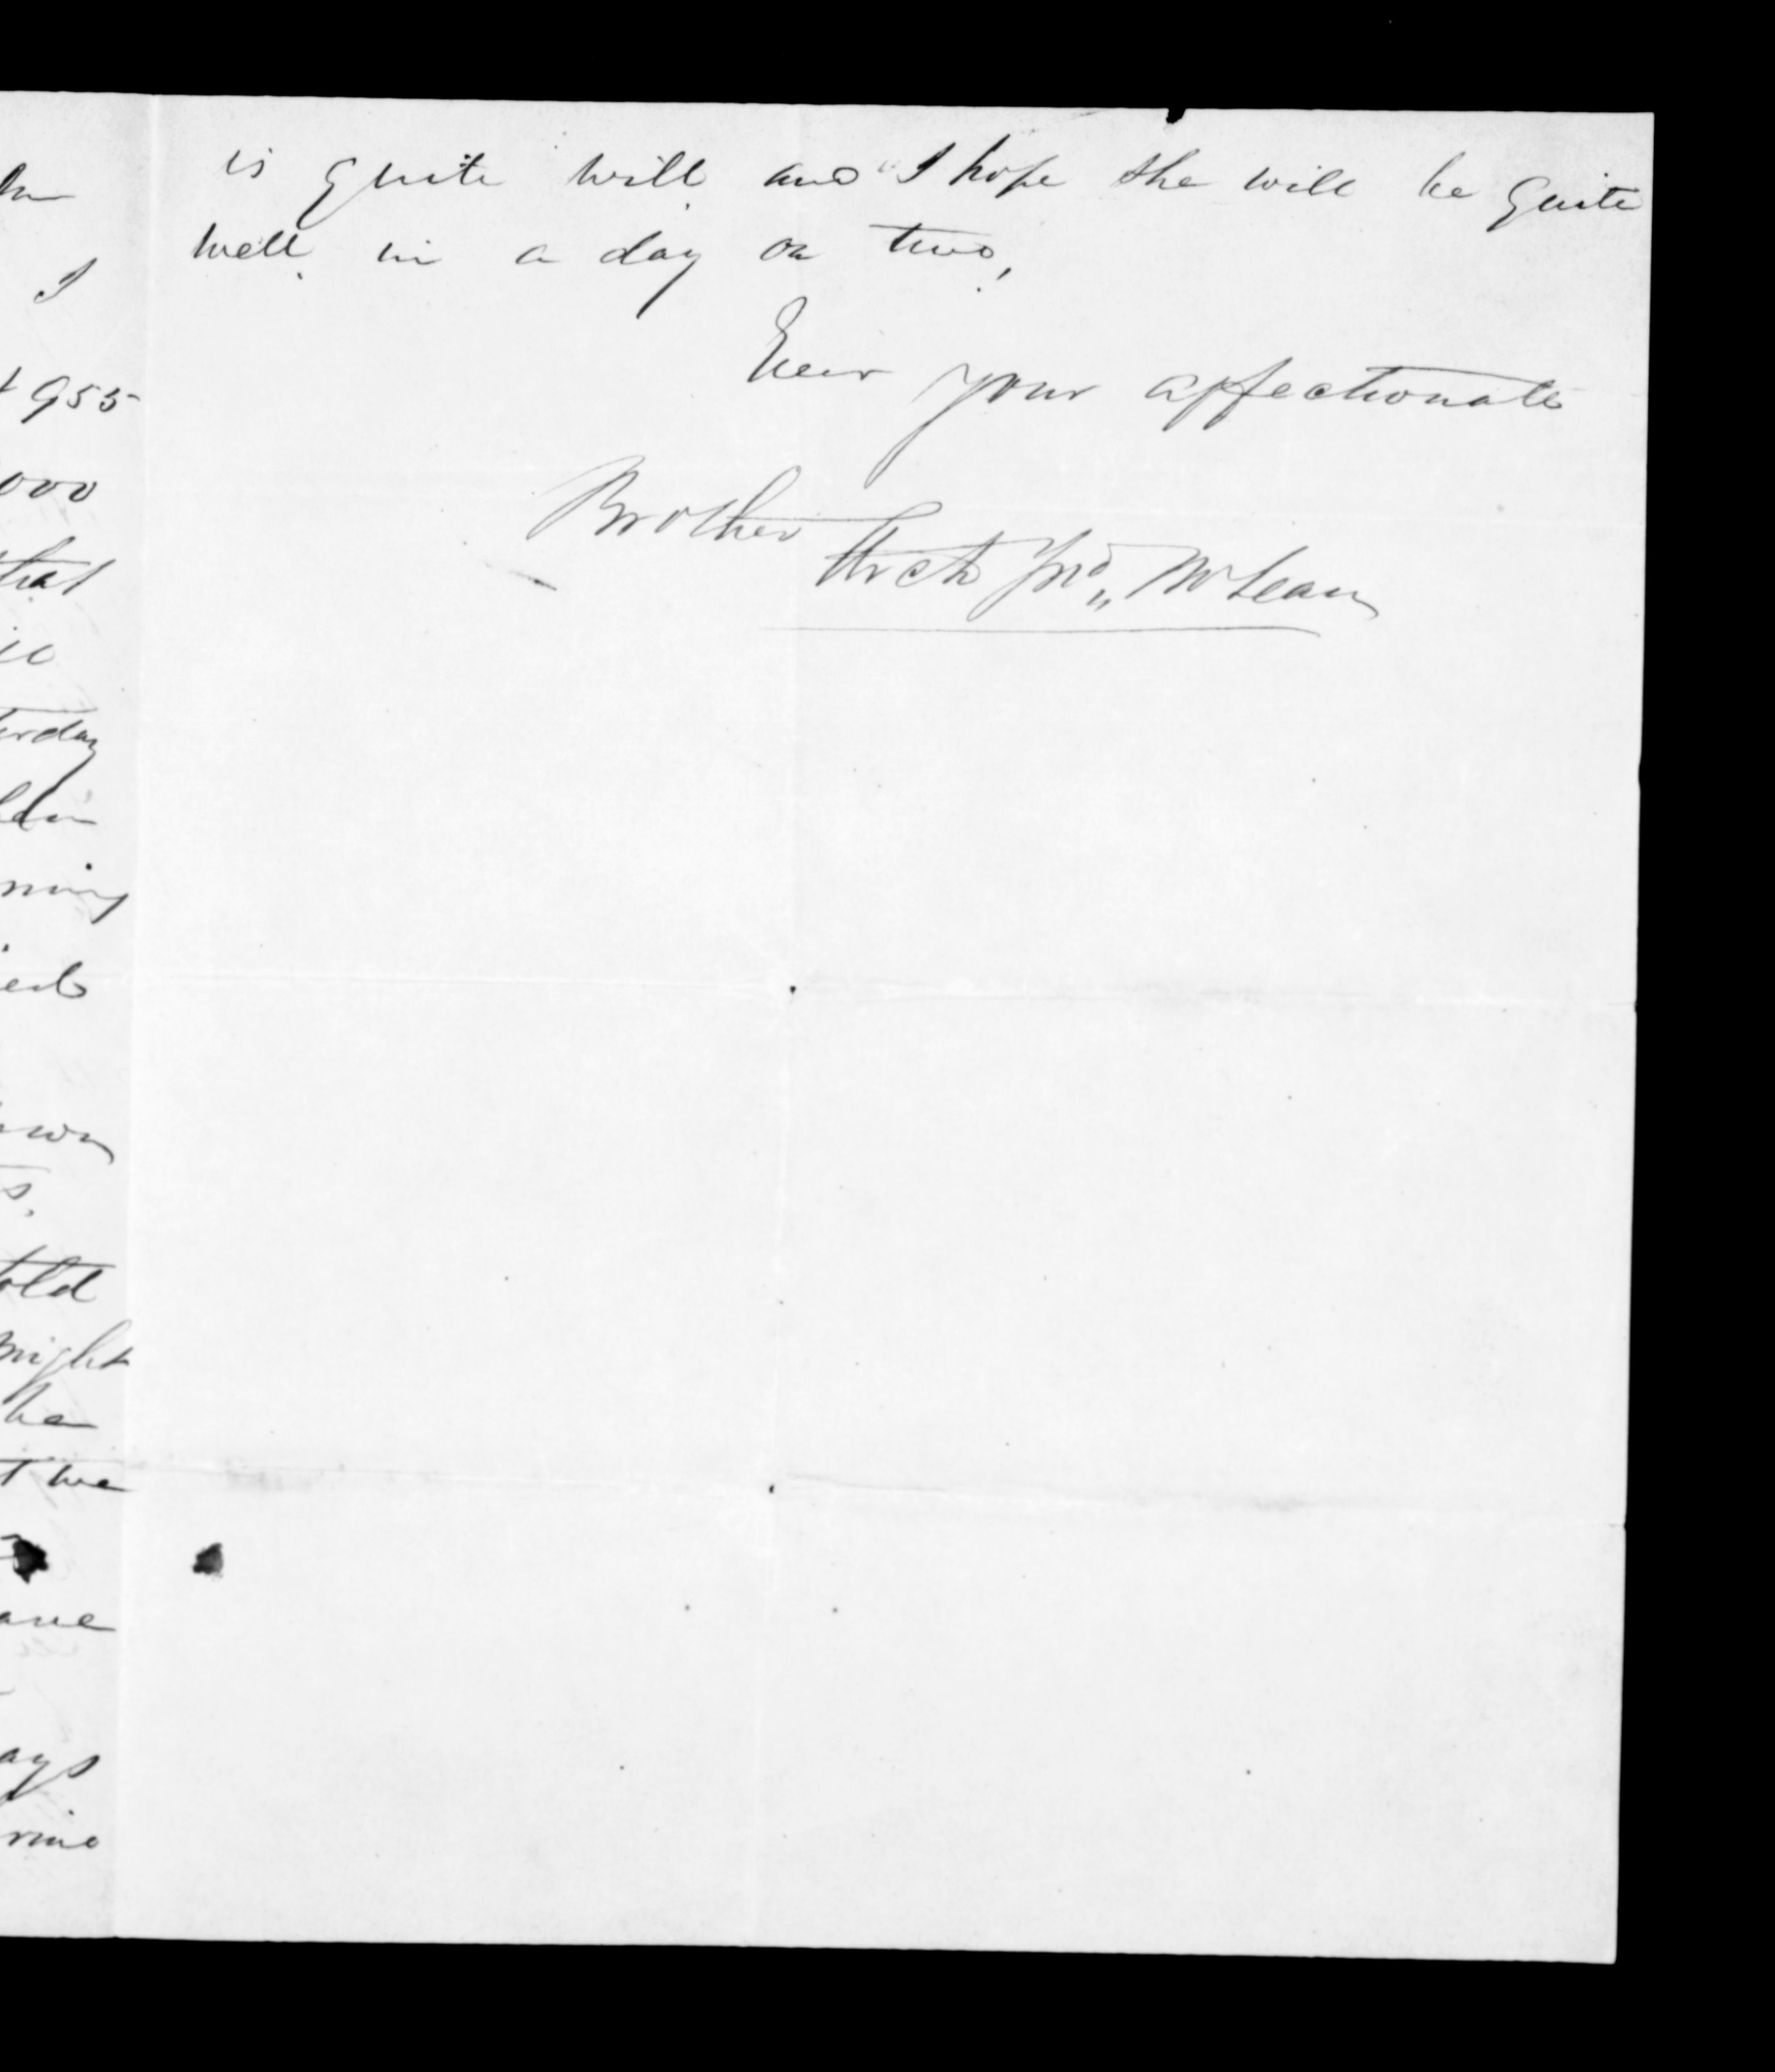 is quite will and I hope she will be quite
well in a day or two,
Ever your affectionate
Brother
Arch Jno,, McLean
I
955
000
that
erday
ning
own
told
might
he
t we
ave
ays